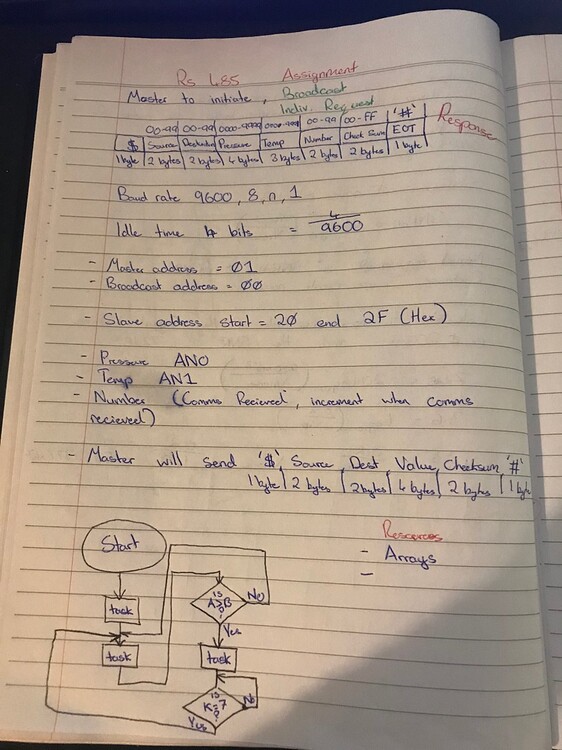 Rs 485 Assignment
Master to initiate, Broadcast
Indiv. Request
00-99 00-99 0000-9999 00-99 00-FF '#' Response
$ Source Pressure Temp Number Check Sum EOT
1 byte 2 bytes 2 bytes 4 bytes 3 bytes 2 bytes 2 bytes 1 byte
Baud rate 9600, 8, n, 1
Idle time 4 bits = 4/9600
- Master address = 01
- Broadcast address = 00
- Slave address start = 20 end 2F (Hex)
- Pressure AN0
- Temp AN1
- Number (Comms Recieved, increment when comms
recieved)
- Master will send '$' Source Dest Value Checksum '#'
1 byte 2 bytes 2 bytes 4 bytes 2 bytes 1 byte
Resources
- Arrays
-
Start
task
task
is
A≥B
?
No
Yes
task
is
K=7
?
No
Yes